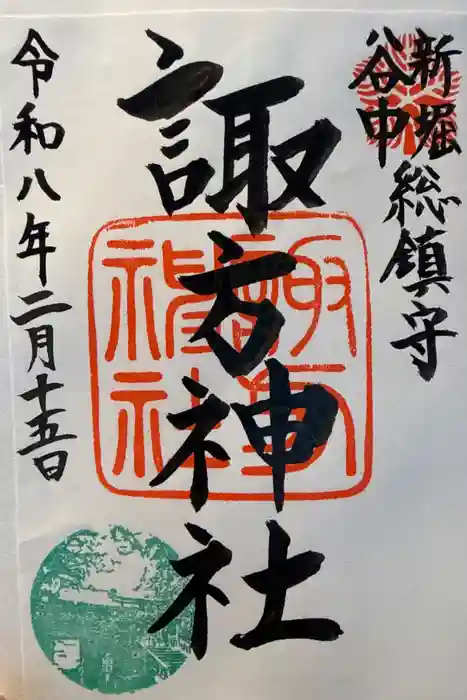 新堀
谷中
総鎮守
諏方神社
令和八年二月十五日
諏方
神社